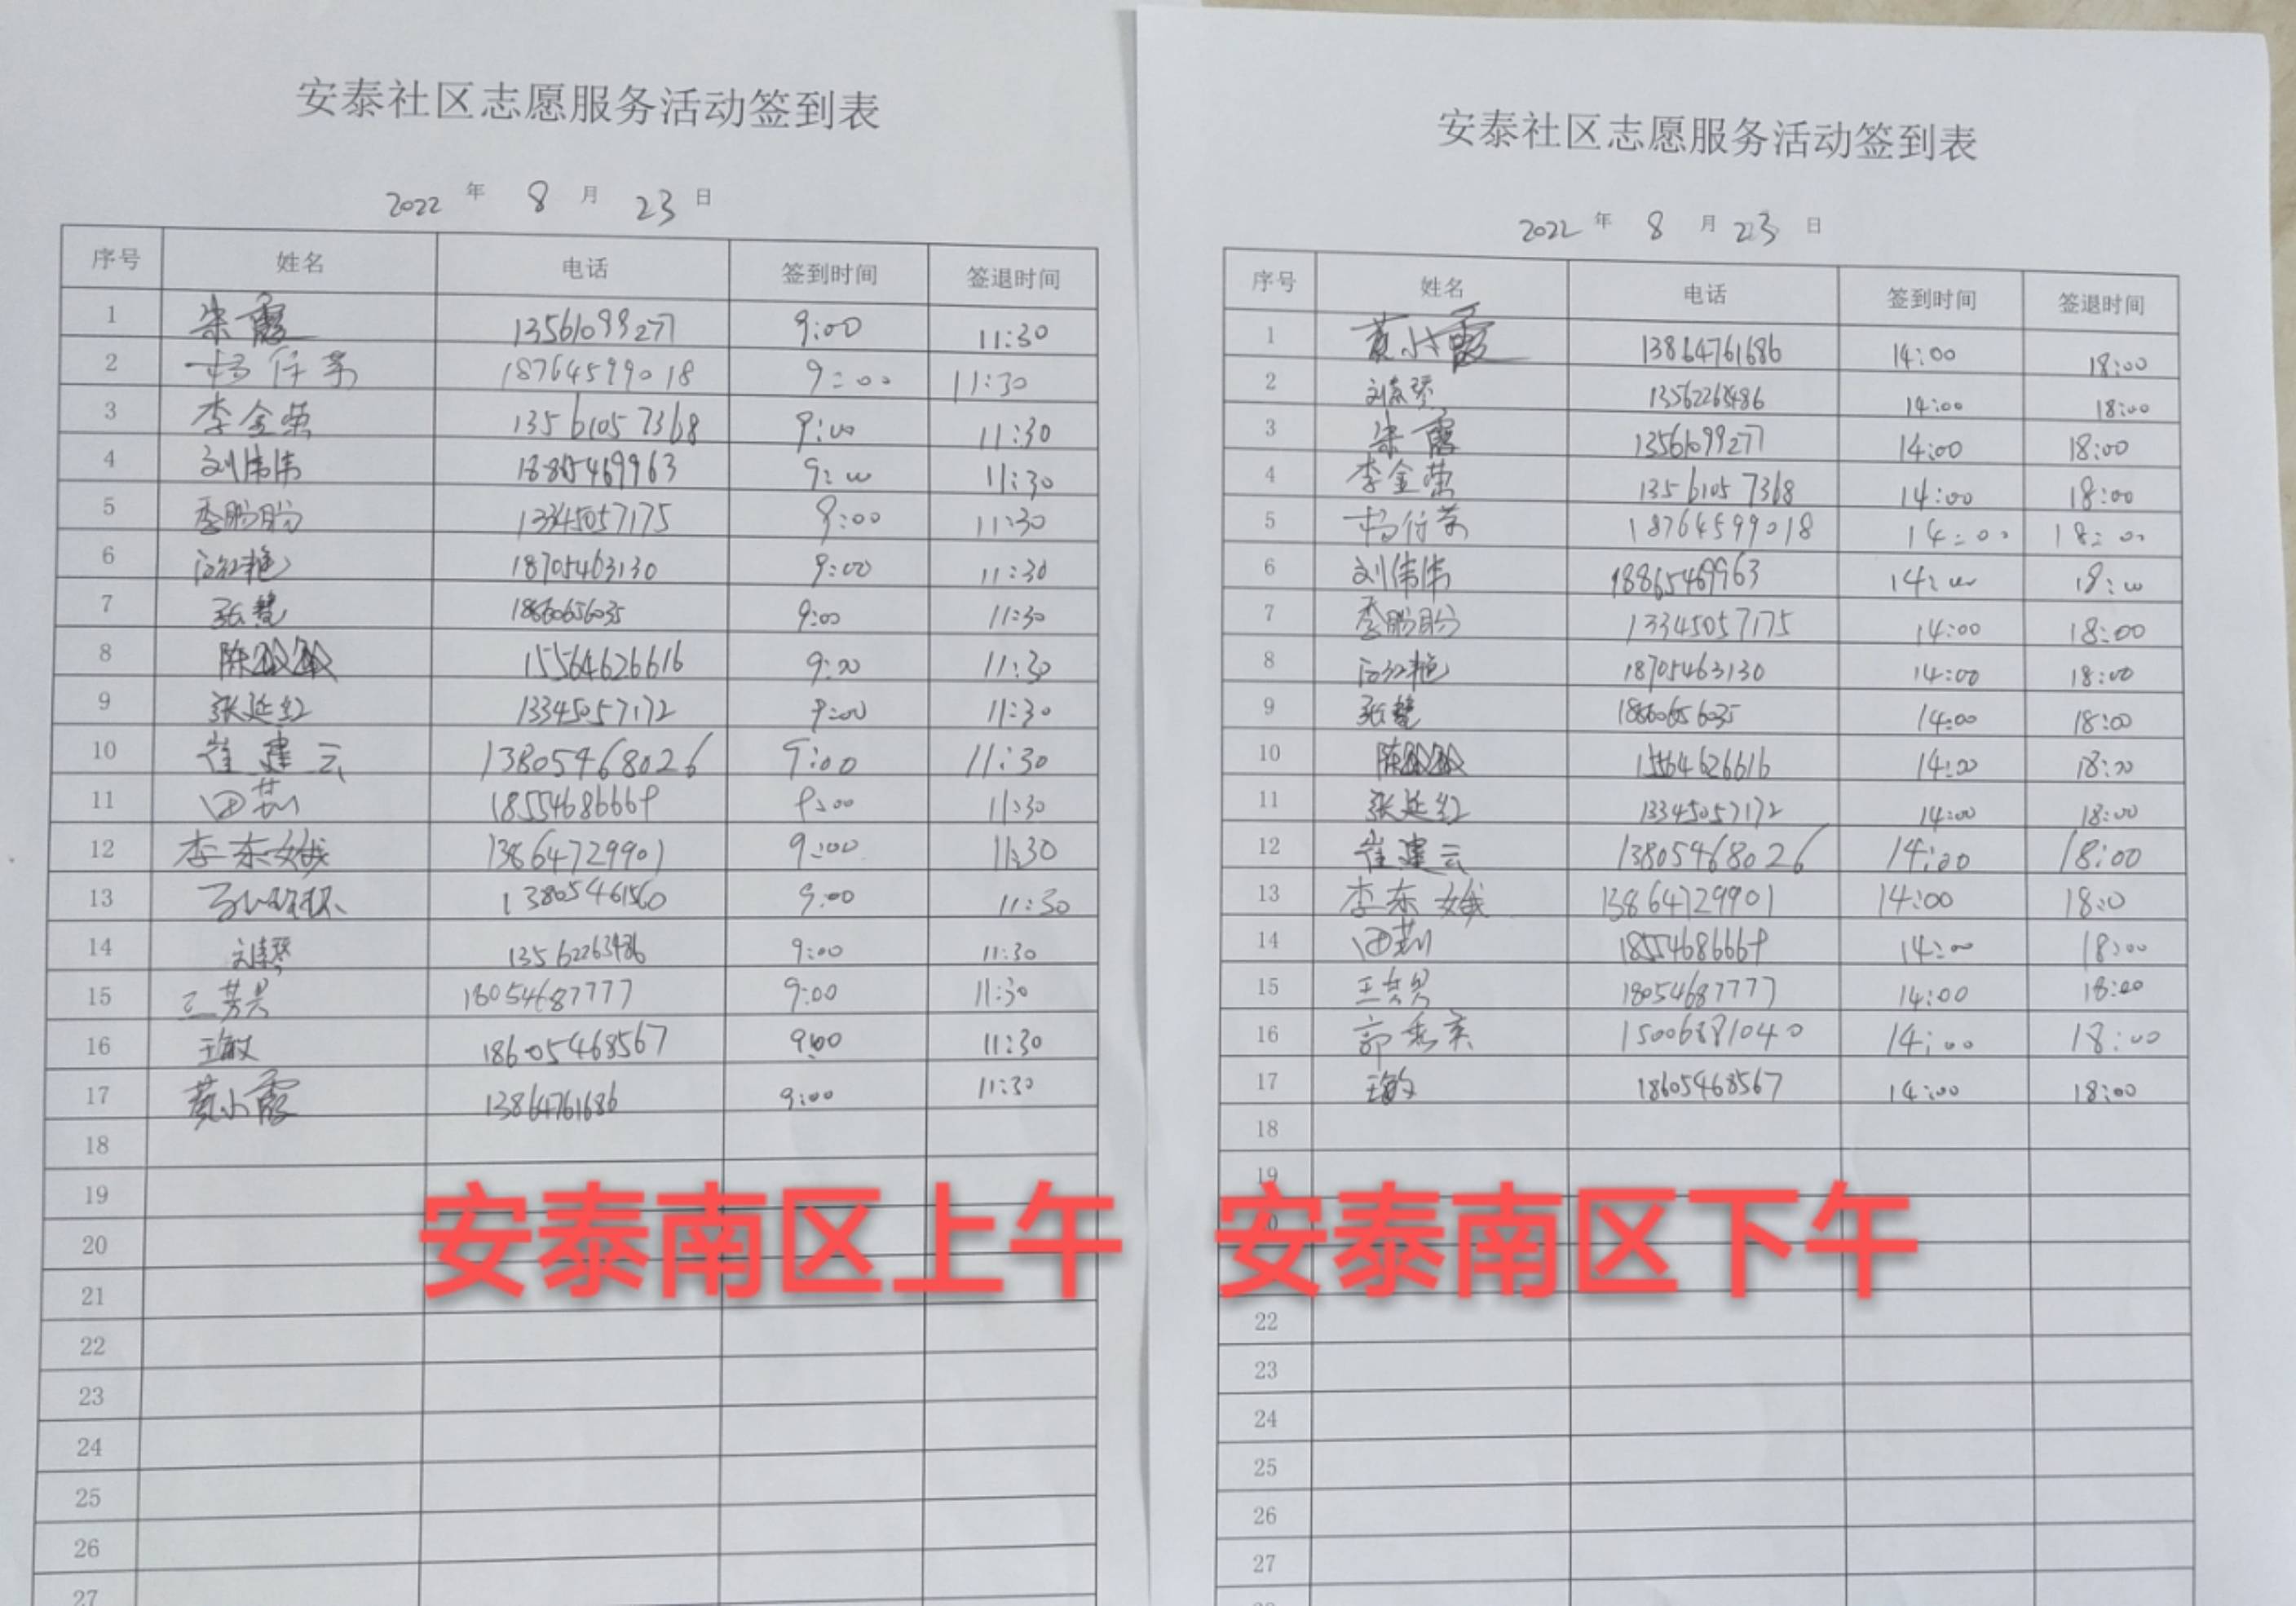 安泰社区志愿服务活动签到表
2022 年 8 月 23 日
序号 姓名 电话 签到时间 签退时间
1 朱霞 13561099277 9:00 11:30
2 18764599018 9:00 11:30
3 李金荣 13561057368 9:00 11:30
4 刘伟伟 18865469963 9:00 11:30
5 李盼盼 13345057175 9:00 11:30
6 18705463130 9:00 11:30
7 张慧 18660656035 9:00 11:30
8 陈 15564626616 9:00 11:30
9 张延红 13345057172 9:00 11:30
10 崔建云 13805468026 9:00 11:30
11 田莉 18554686669 9:00 11:30
12 李东娥 13864729901 9:00 11:30
13 13805461560 9:00 11:30
14 13562263486 9:00 11:30
15 18054687777 9:00 11:30
16 王敏 18605468567 9:00 11:30
17 黄小霞 13864761686 9:00 11:30
18
19
20
21
22
23
24
25
26
27
安泰南区上午
安泰社区志愿服务活动签到表
2022 年 8 月 23 日
序号 姓名 电话 签到时间 签退时间
1 黄小霞 13864761686 14:00 18:00
2 13562263486 14:00 18:00
3 朱霞 13561099277 14:00 18:00
4 李金荣 13561057368 14:00 18:00
5 18764599018 14:00 18:00
6 刘伟伟 18865469963 14:00 18:00
7 李盼盼 13345057175 14:00 18:00
8 18705463130 14:00 18:00
9 张慧 18660656035 14:00 18:00
10 陈 15564626616 14:00 18:00
11 张延红 13345057172 14:00 18:00
12 崔建云 13805468026 14:00 18:00
13 李东娥 13864729901 14:00 18:0
14 田莉 18554686669 14:00 18:00
15 18054687777 14:00 18:00
16 郭秀英 15006881040 14:00 18:00
17 王敏 18605468567 14:00 18:00
18
19
22
23
24
25
26
27
安泰南区下午